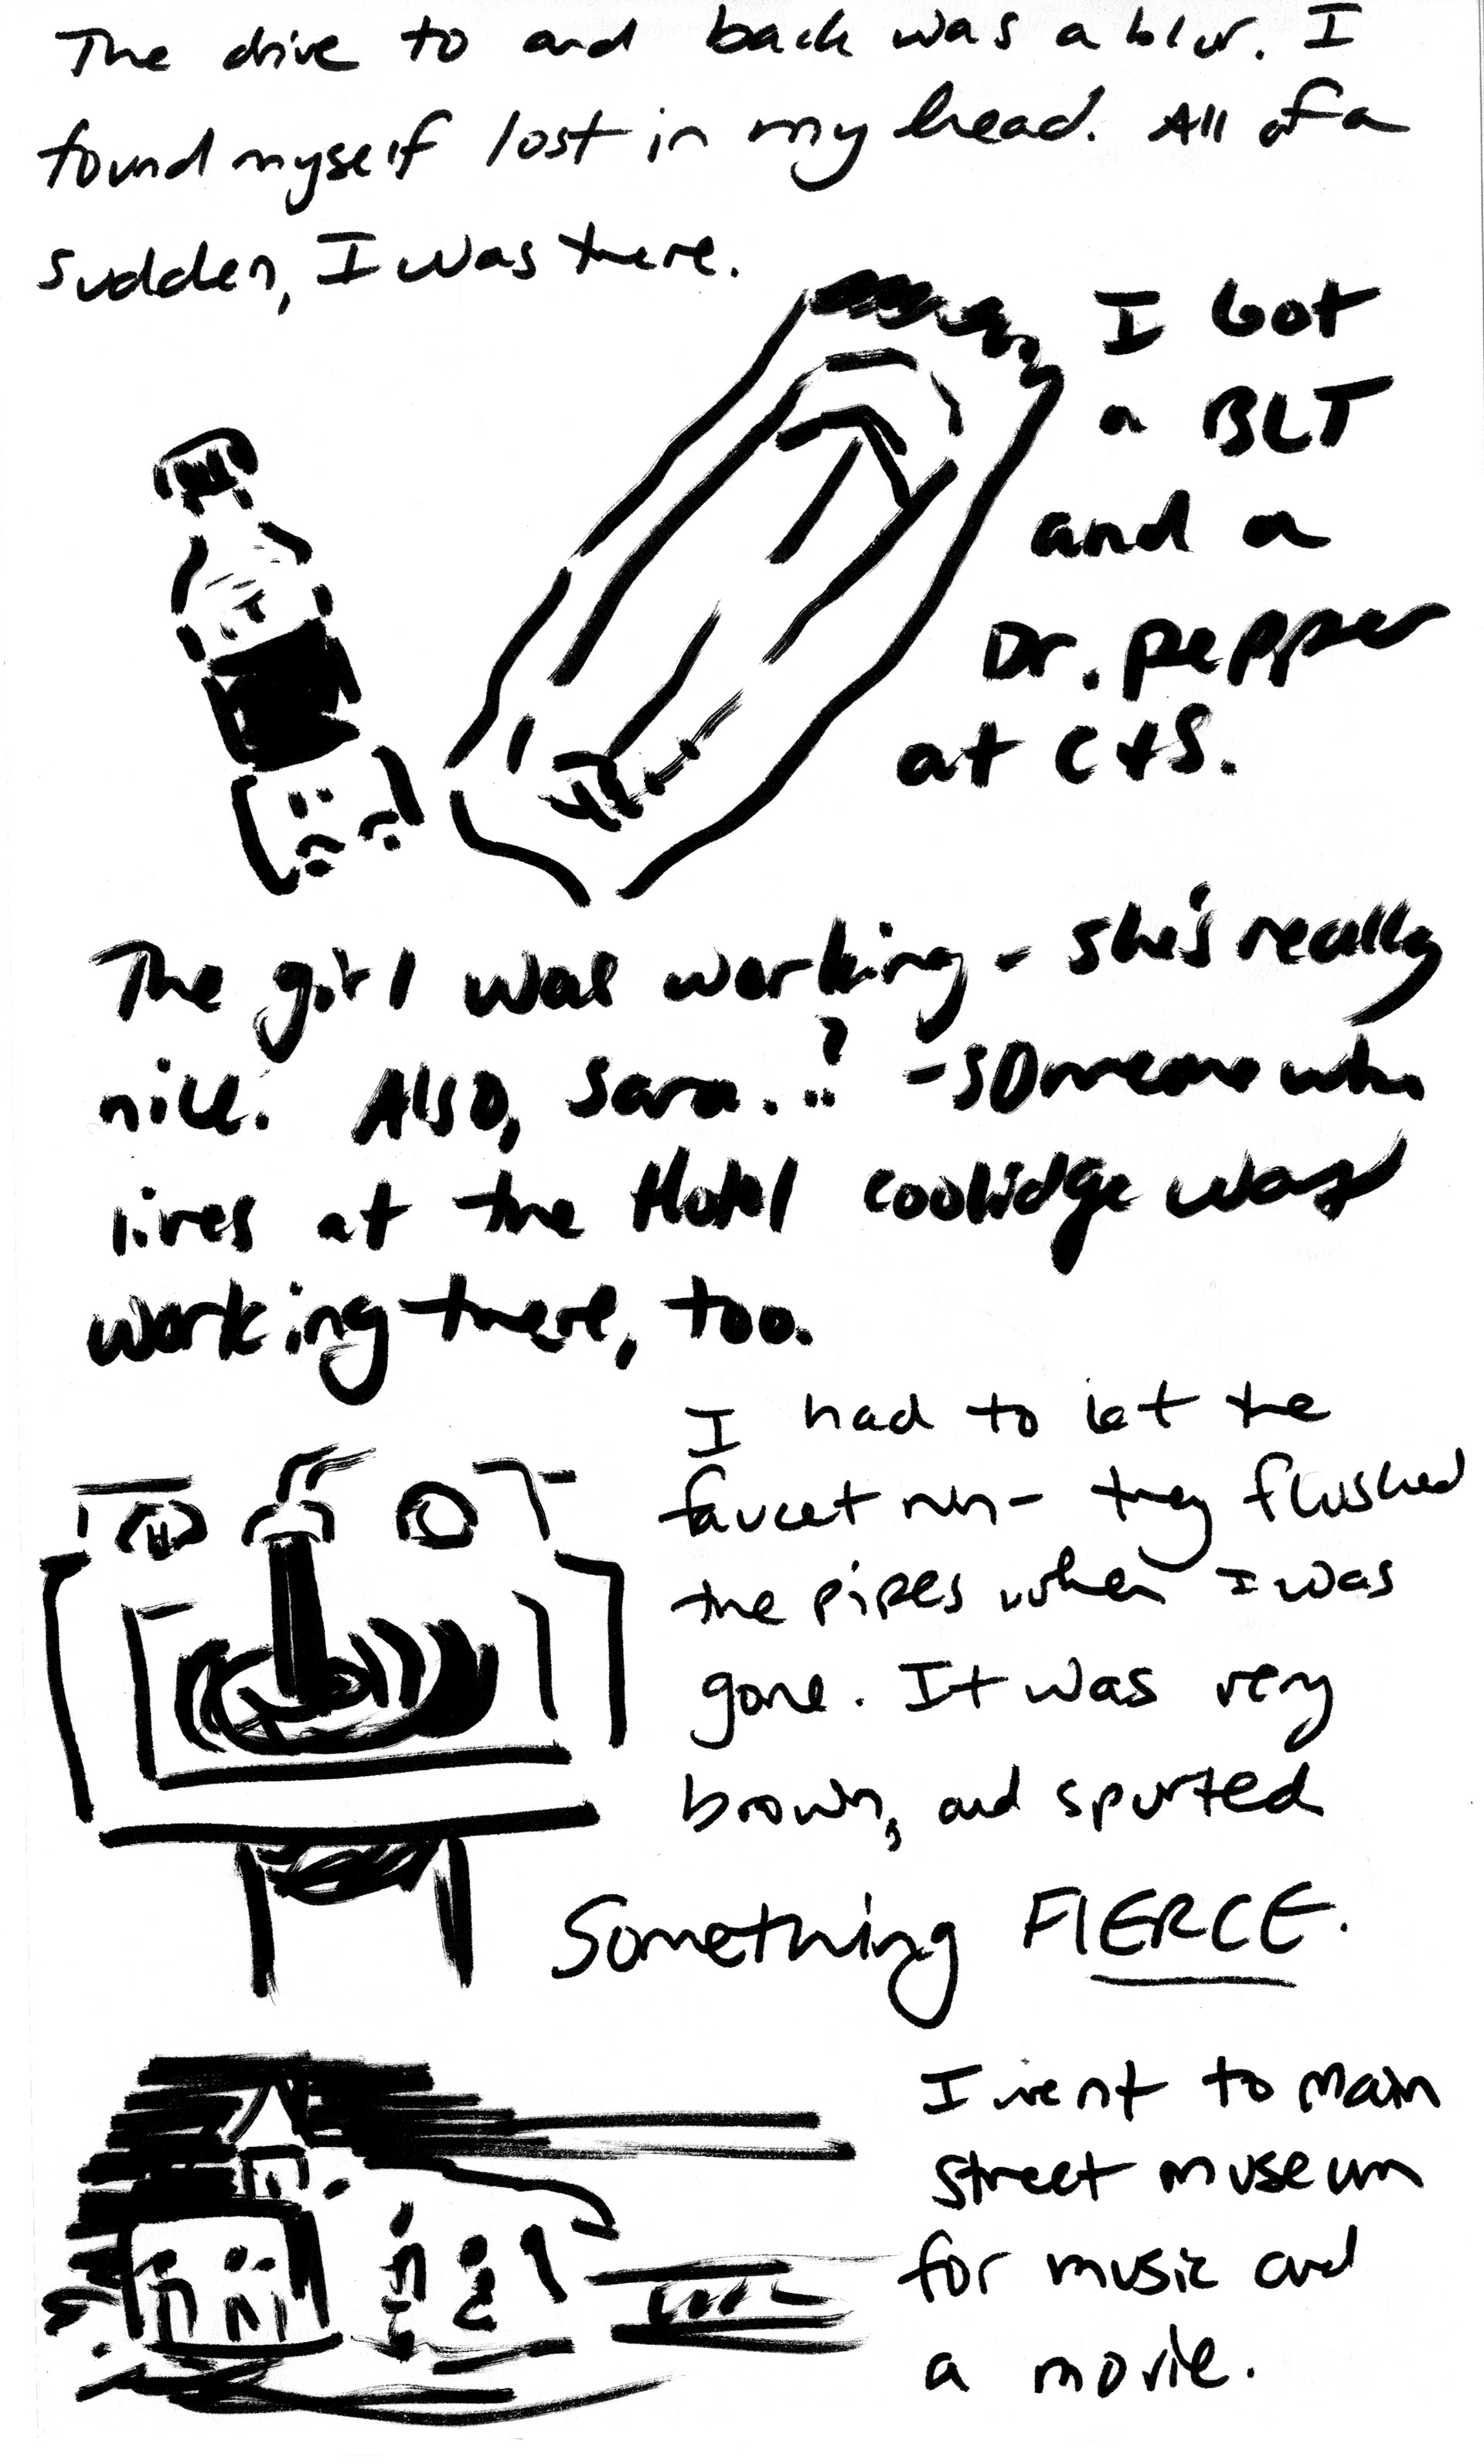 The drive to and back was a blur. I
found myself lost in my head. All of a
sudden, I was there.
I Got
a BLT
and a
Dr. pepper
at C+S.
The girl was working - she's really
nice. Also, Sara..? - someone who
lives at the Hotel coolidge was
working there, too.
I had to let the
faucet run- they flushed
the pipes when I was
gone. It was very
brown, and spurted
Something FIERCE.
H
I went to main
street museum
for music and
a movie.